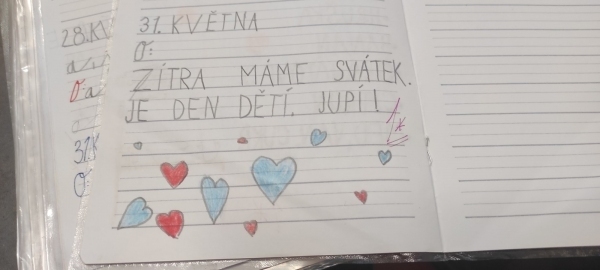 28.KV
31. KVĚTNA
O:
ZÍTRA MÁME SVÁTEK.
JE DEN DĚTÍ. JUPÍ!